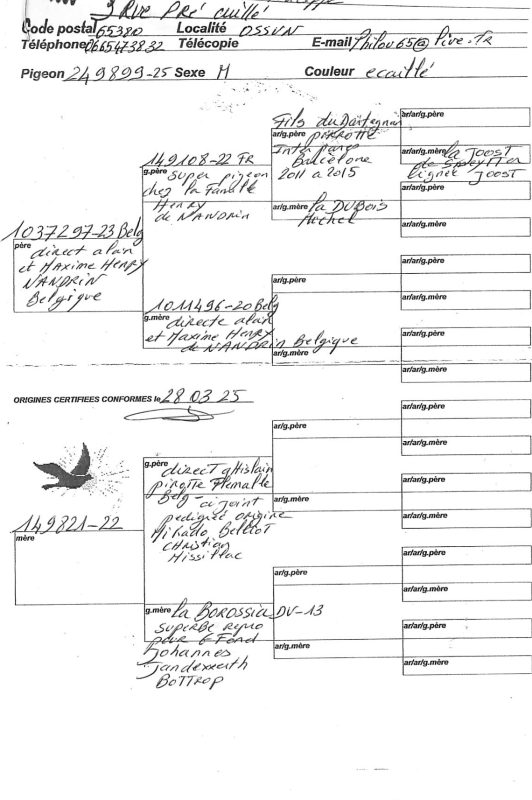 3 RUE PRÉ cuillé
Code postal 65380 Localité OSSUN
Téléphone 0665473832 Télécopie E-mail Philou65@live.fr
Pigeon 249899-25 Sexe M Couleur ecaillé
ar/ar/g.père
Fils du Dartagnan
ar/g.père pirotte
Inter pau
Barcelone
2011 a 2015
ar/ar/g.mère la JOOST
lignée JOOST
149108-22 FR
g.père super pigeon
chez la famille
Henry
de NANDRIN
ar/ar/g.père
ar/g.mère la DUBOIS
Michel
ar/ar/g.mère
1037297-23 Belg
père direct alain
et MAXIME HENRY
NANDRIN
Belgique
ar/ar/g.père
ar/g.père
ar/ar/g.mère
1011496-20 Belg
g.mère directe alain
et Maxime Henry
de NANDRIN Belgique
ar/ar/g.père
ar/g.mère
ar/ar/g.mère
ORIGINES CERTIFIEES CONFORMES le 28 03 25
ar/ar/g.père
ar/g.père
ar/ar/g.mère
g.père direct ghislain
pirotte Flemalle
Belg - ci joint
pedigree origine
Mikado Belliot
Christian
Missillac
ar/ar/g.père
ar/g.mère
ar/ar/g.mère
149821-22
mère
ar/ar/g.père
ar/g.père
ar/ar/g.mère
g.mère la BOROSSIA DV-13
SUPERBE repro
pour G Fond
Johannes
BOTTROP
ar/ar/g.père
ar/g.mère
ar/ar/g.mère